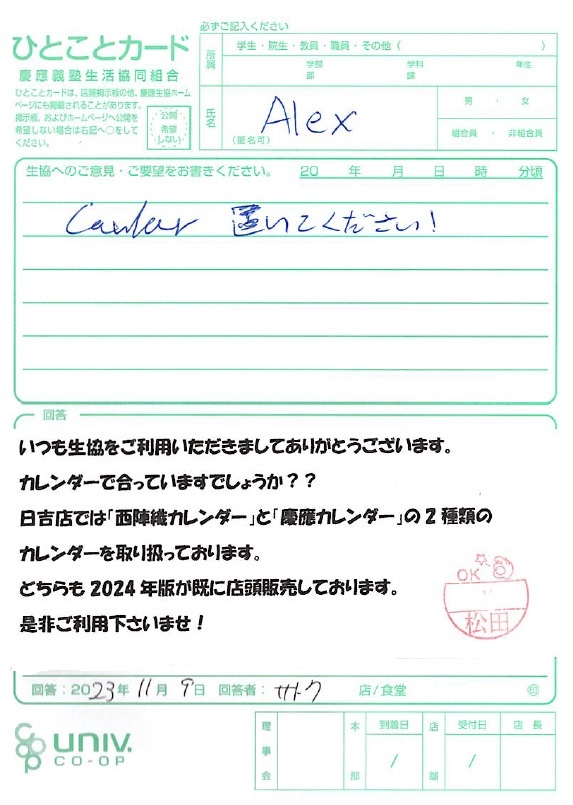 必ずご記入ください
ひとことカード
慶應義塾生活協同組合
ひとことカードは、店舗掲示板の他、慶應生協ホーム
ページにも掲載されることがあります。
掲示板、およびホームページへ公開を
希望しない場合は右記へ○をして
ください。
公開
希望
しない
所属
学生・院生・教員・職員・その他 ( )
学部 学科 年生
部 課
氏名
(匿名可)
Alex
男 ・ 女
組合員 ・ 非組合員
生協へのご意見・ご要望をお書きください。 20 年 月 日 時 分頃
置いてください!
回答
いつも生協をご利用いただきましてありがとうございます。
カレンダーで合っていますでしょうか??
日吉店では「西陣織カレンダー」と「慶應カレンダー」の2種類の
カレンダーを取り扱っております。
どちらも 2024 年版が既に店頭販売しております。
是非ご利用下さいませ!
OK
松田
回答:2023年 11月 9日 回答者: 店/食堂 ㊞
univ.
CO-OP
理事会
本部
到着日
/
店舗
受付日
/
店長